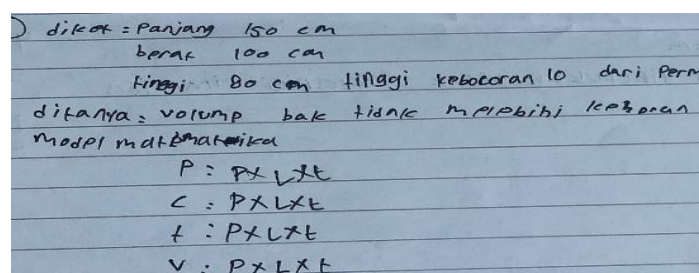 ) diket = Panjang 150 cm
berat 100 cm
tinggi 80 cm tinggi kebocoran 10 dari Perm
ditanya = volump bak tidak melebihi
Model matematika
P : P x L x t
L : P x L x t
t : P x L x t
V : P x L x t